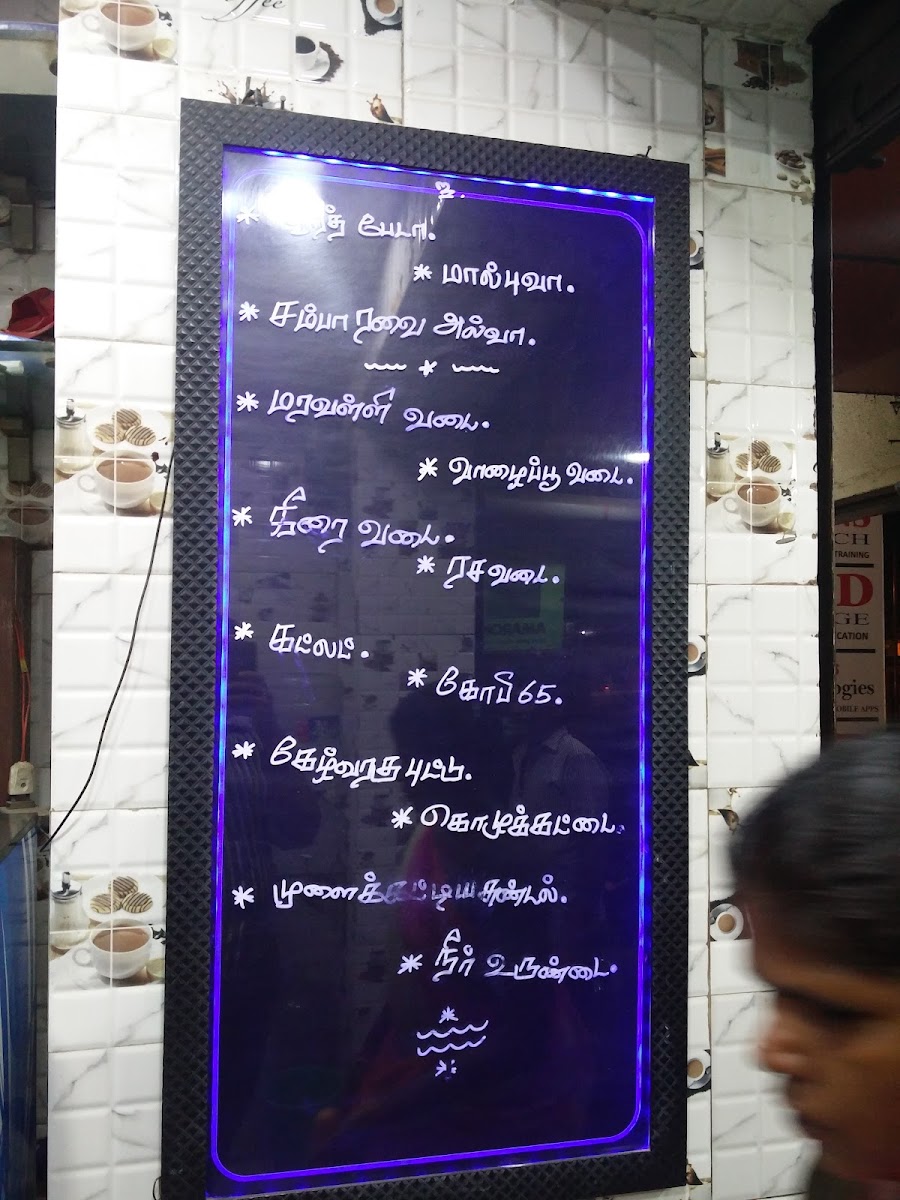 ffee
உ.
* பேடா.
* மால்புவா.
* சம்பா ரவை அல்வா.
* மரவள்ளி வடை.
* வாழைப்பூ வடை.
* கீரை வடை.
* ரசவடை.
* கட்லட்.
* கோபி 65.
* கேழ்வரகு புட்டு.
* கொழுக்கட்டை.
* முளைக்கட்டிய சுண்டல்.
* நீர் உருண்டை.
CH
TRAINING
D
GE
CATION
ogies
MOBILE APPS